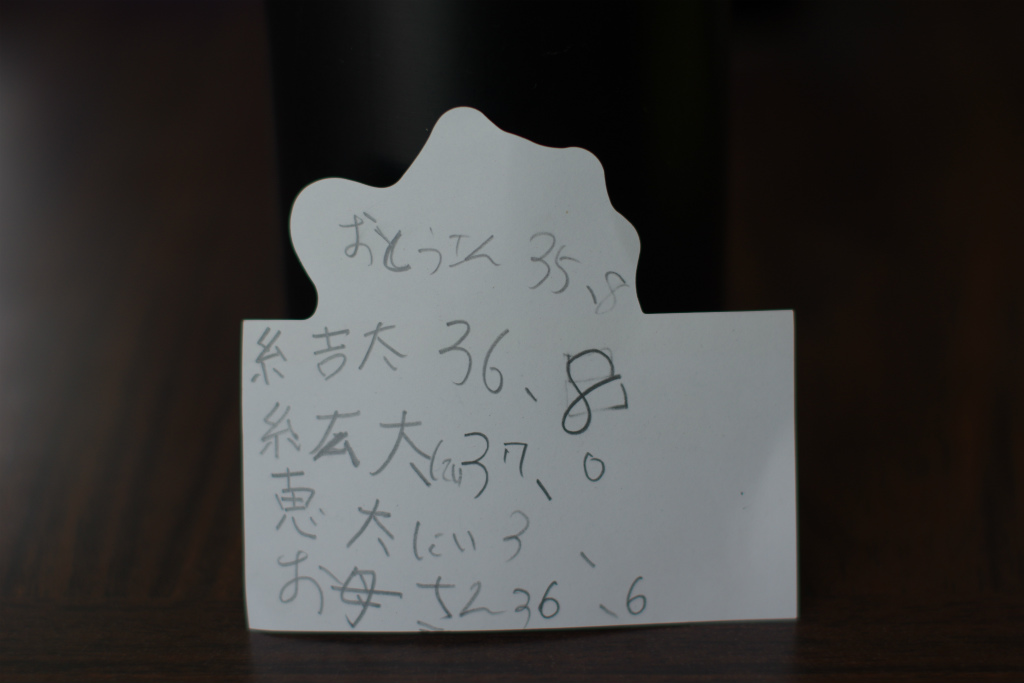 おとうさん 35、8
糸吉太 36、8
糸広太にい37、0
恵太にい3 、
お母さん36、6